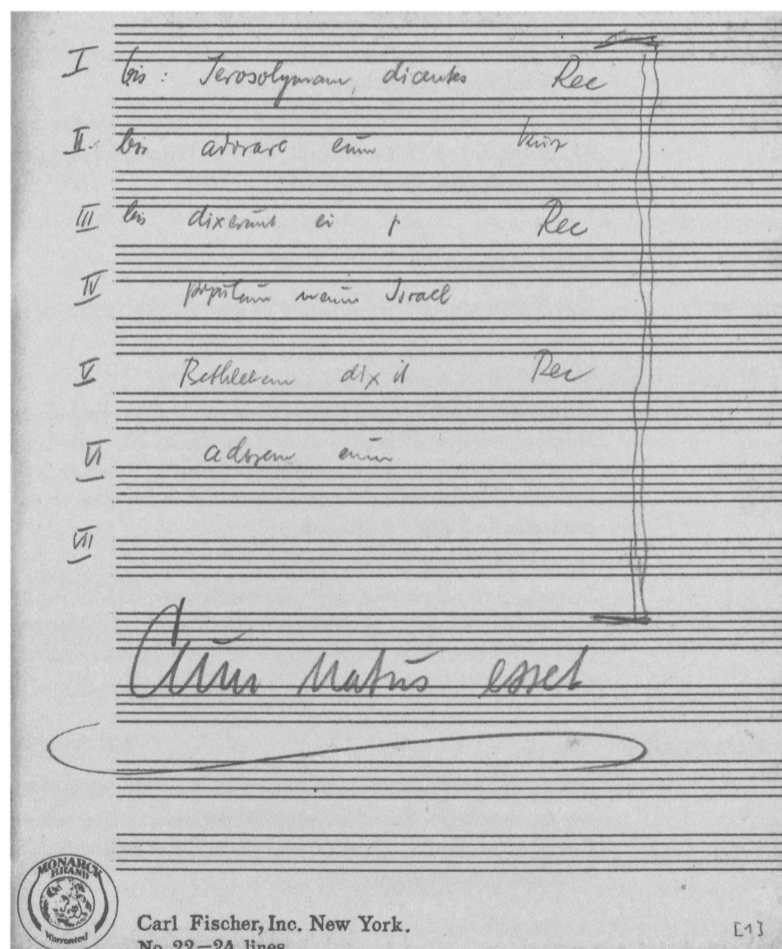 I bis: Jerosolymam, dicentes Rec
II. bis adorare eum
III bis dixerunt ei Rec
IV populum meum Israel
V Bethlehem dixit Rec
VI adorem eum
VII
Cum natus esset
MONARCH BRAND
Warranted
Carl Fischer, Inc. New York.
No. 22—24 lines.
[1]